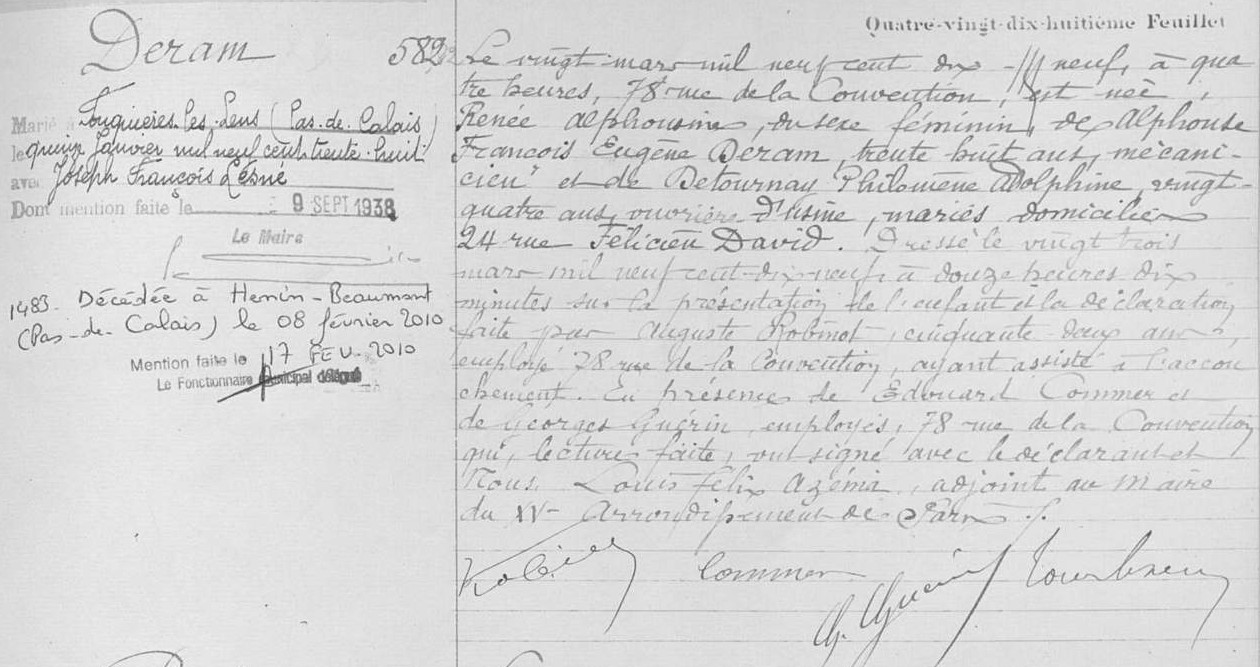 Quatre-vingt-dix-huitième Feuillet
Deram
582
Marié à Fouquières-les-Lens (Pas-de-Calais)
le quinze Janvier mil neuf cent trente-huit
avec Joseph François Lesne
Dont mention faite le 9 SEPT 1938
Le Maire
1483. Décédée à Henin-Beaumont
(Pas-de-Calais) le 08 février 2010
Mention faite le 17 FEV. 2010
Le Fonctionnaire municipal délégué
Le vingt mars mil neuf cent dix-neuf, à qua
tre heures, 78 rue de la Convention, est née,
Renée Alphonsine, du sexe féminin, de Alphonse
François Eugène Deram, trente huit ans, mécani-
cien et de Detournay Philomène Adolphine, vingt-
quatre ans, ouvrière d'usine, mariés domiciliés
24 rue Félicien David. Dressé le vingt trois
mars mil neuf cent-dix-neuf, à douze heures dix
minutes sur la présentation de l'enfant et la déclaration
faite par Auguste Robinot, cinquante deux ans,
employé 78 rue de la Convention, ayant assisté à l'accou
chement. En présence de Edouard Commer et
de Georges Guérin, employés, 78 rue de la Convention
qui, lecture faite, ont signé avec le déclarant et
Nous. Louis Félix Azéma, adjoint au Maire
du XVe Arrondissement de Paris ./.
Commer
G. Guérin